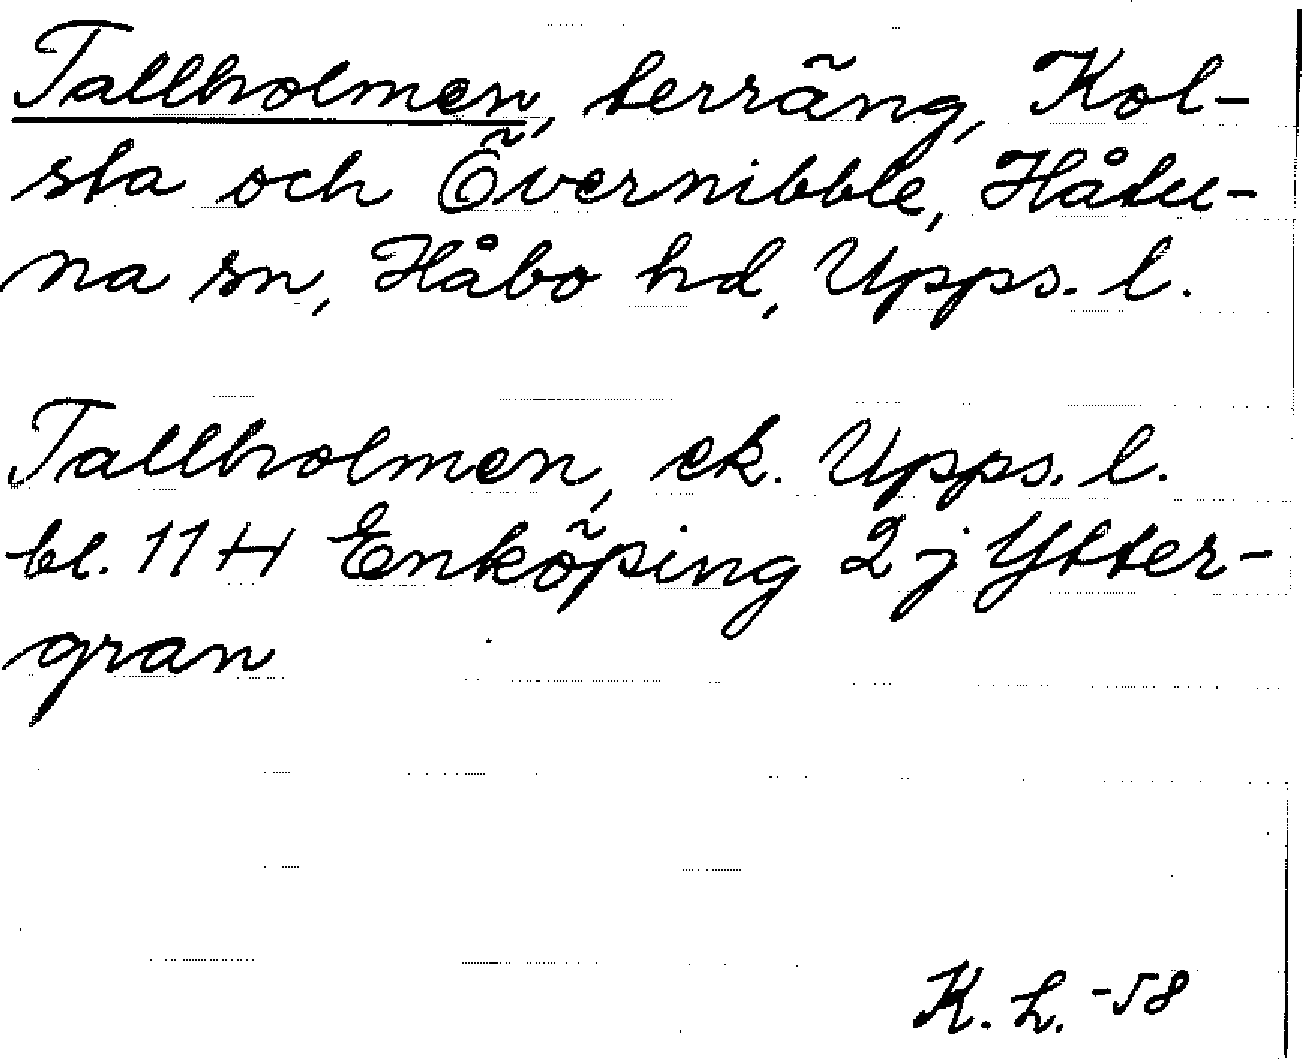 Tallholmen, terräng, Kol-
sta och Övernibble, Håtu-
na sn, Håbo hd, Upps. l.
Tallholmen, ek. Upps. l.
bl. 11 H Enköping 2 j Ytter-
gran
K. L. -58